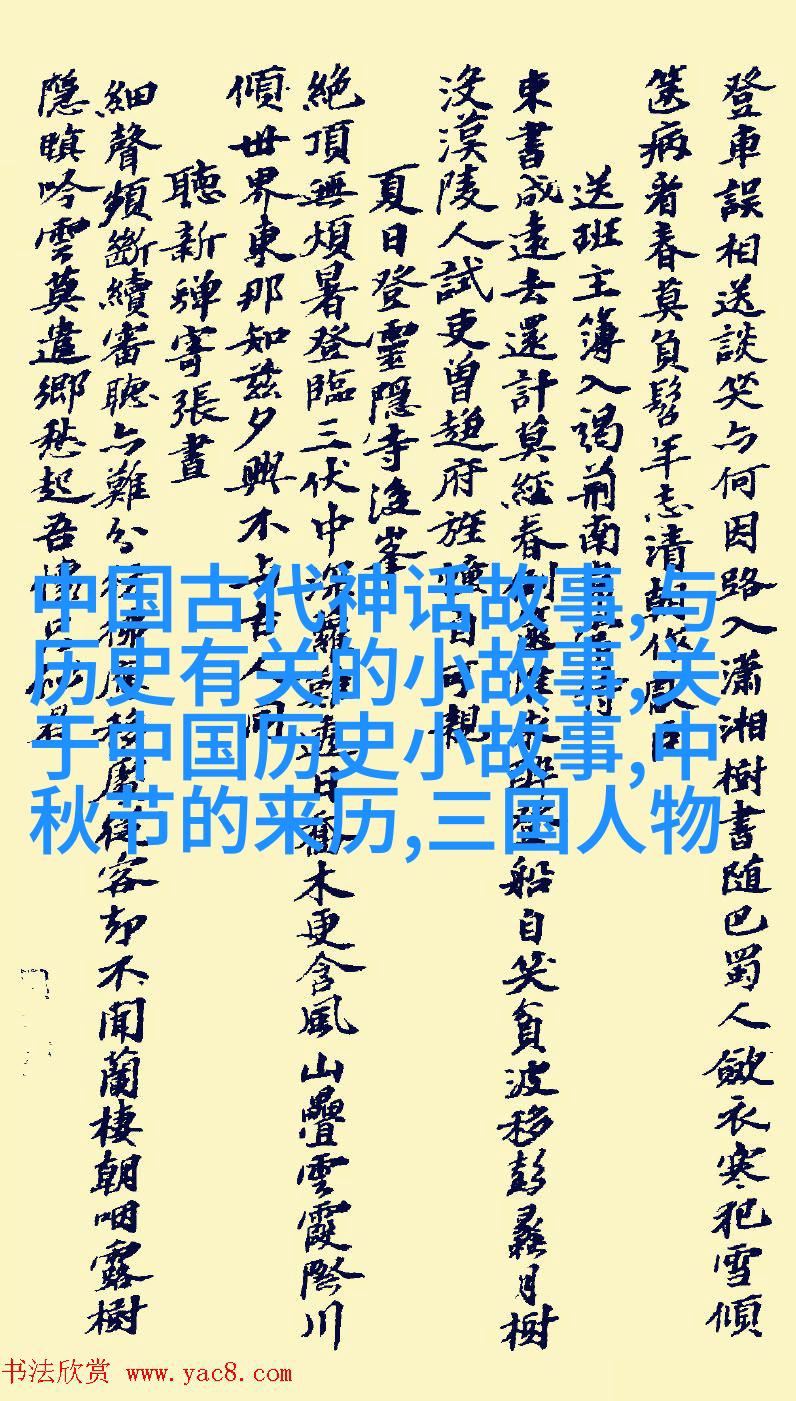 登車誤相送談笑亦何因路入瀟湘樹書随巴蜀人斂衣寒犯雪傾
篋病看春莫負髫年志清朝作
送班主簿入謁荊南
東書成遠去還計莫經春船自笑貧波移彭蠡月樹
没漢陵人試吏曾趨府旌日可親
夏日登靈隱寺後峯
絶頂無煩暑登臨三伏中深蘿透日喬木更含風山疊雲霞際川
傾世界東那知兹夕興不古人同
聽新蟬寄張晝
細聲頻斷續審聽亦難分從容却不聞蘭棲朝咽露樹
隱瞋吟雲莫遣鄉愁起吾懷
中国古代神话故事,与
历史有关的小故事,关
于中国历史小故事,中
秋节的来历,三国人物
书法欣赏 www.yac8.com